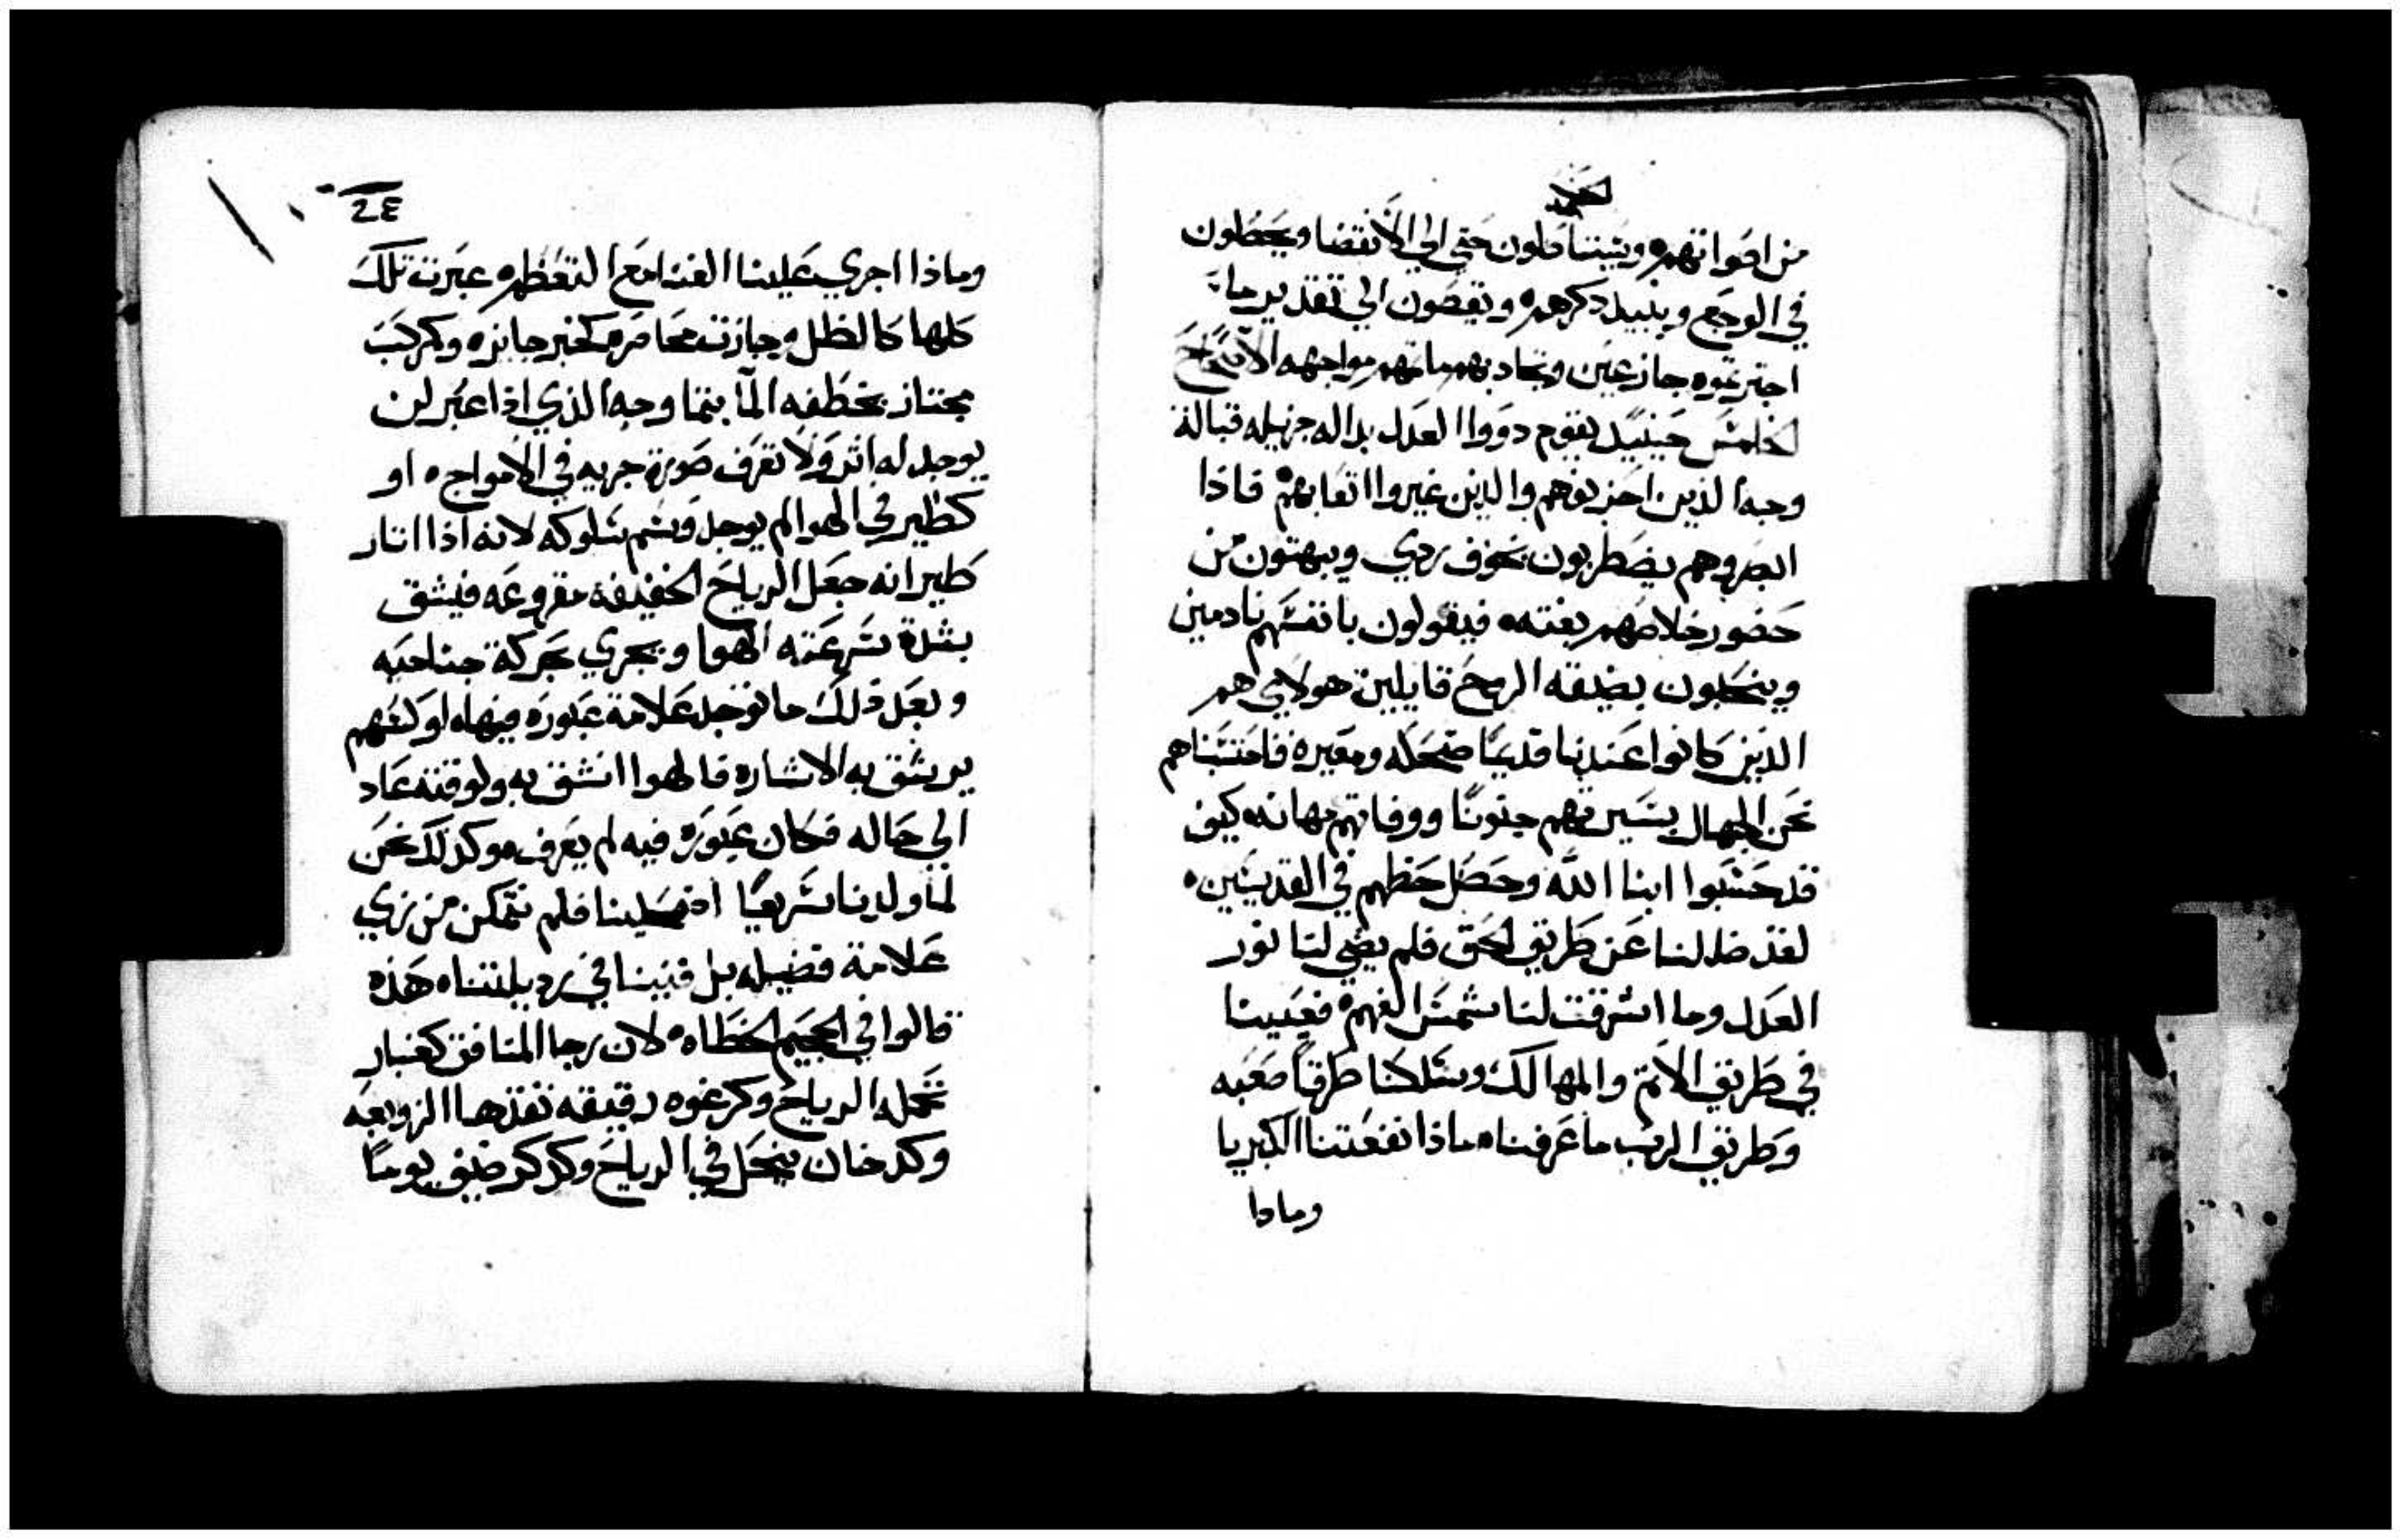 من اصواتهم ويتيتناصلون حتي الي الانقضا ويحصلون
في الوجع ويبيد ذكرهم ويقصون الي تقدير ما
اجترعوه جازعين وتحاد بهم ماتهم مواجهه الاصحاح
الخامس حينيد يقوم دووا العدل بداله جزيله قبالة
وجه الذين احزنوهم والذين غيروا اتعابهم فاذا
ابصروهم يضطربون بخوف ردي ويبهتون من
حضور خلاصهم بغته فيقولون بانفسهم نادمين
وينتحبون بضيقه الروح قايلين هولاي هم
الدين كانوا عندنا قديمًا ضحكه ومعيرة فاحتسبناهم
نحن الجهال بسيرتهم جنونًا ووفاتهم مهانه كيف
قد حسبوا ابنا الله وحصل حظهم في القديسين
لقد ضللنا عن طريق الحق فلم يضي لنا نور
العدل وما اشرقت لنا شمس الفهم فعيينا
في طريق الاثم والمهالك وسلكنا طرقًا صعبه
وطريق الرب ما عرفناه ماذا نفعتنا الكبريا
وماذا
24
وماذا اجري علينا الغنا مع التعظم عبرت تلك
كلها كالظل وجازت محاضره كخبر جايزه وكمركب
مجتاز بخطفه الما بتما وجه الذي اذا عبر لن
يوجد له اثر ولا تعرف صورة جريه في الامواج او
كطير في الهوا لم يوجد وسم سلوكه لانه اذا اثار
طيرانه جعل الرياح الخفيفة مقروعه فيشق
بشدة سرعته الهوا ويجري بحركة جناحيه
وبعد ذلك ما توجد علامة عبوره فيها او كسهم
يرشق به الاشاره فالهوا انشق به ولوقته عاد
الي حاله فكان عبوره فيه لم يعرف وكذلك نحن
لما ولدنا سريعًا اضمحلينا فلم نتمكن من نري
علامة فضيله بل فنينا في رديلتنا هذه
قالوا في الجحيم الخطاه لان رجا المنافق كغبار
تحمله الرياح وكرغوه دقيقه تفذها الزوبعه
وكدخان ينحل في الرياح وكذكر ضيف يومًا